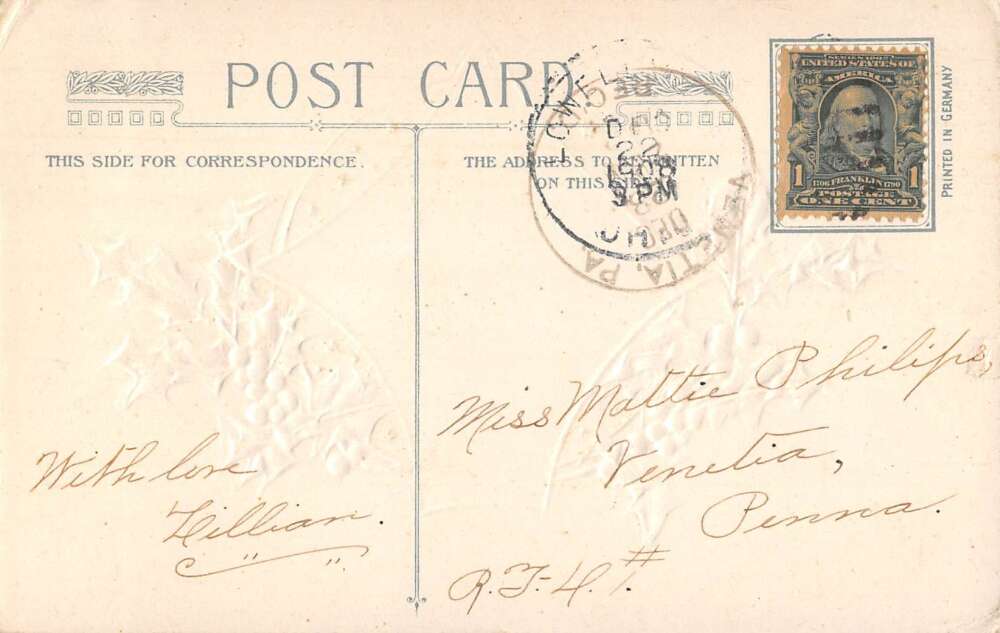 POST CARD
THIS SIDE FOR CORRESPONDENCE.
THE ADDRESS TO BE WRITTEN
ON THIS SIDE
DEC
22
1908
3 PM
VENETIA, PA.
DEC
SERIES 1902
UNITED STATES OF
AMERICA
1 1706 FRANKLIN 1790 1
POSTAGE
ONE CENT
PRINTED IN GERMANY
With love
Lillian.
Miss Mattie Philips,
Venetia,
Penna.